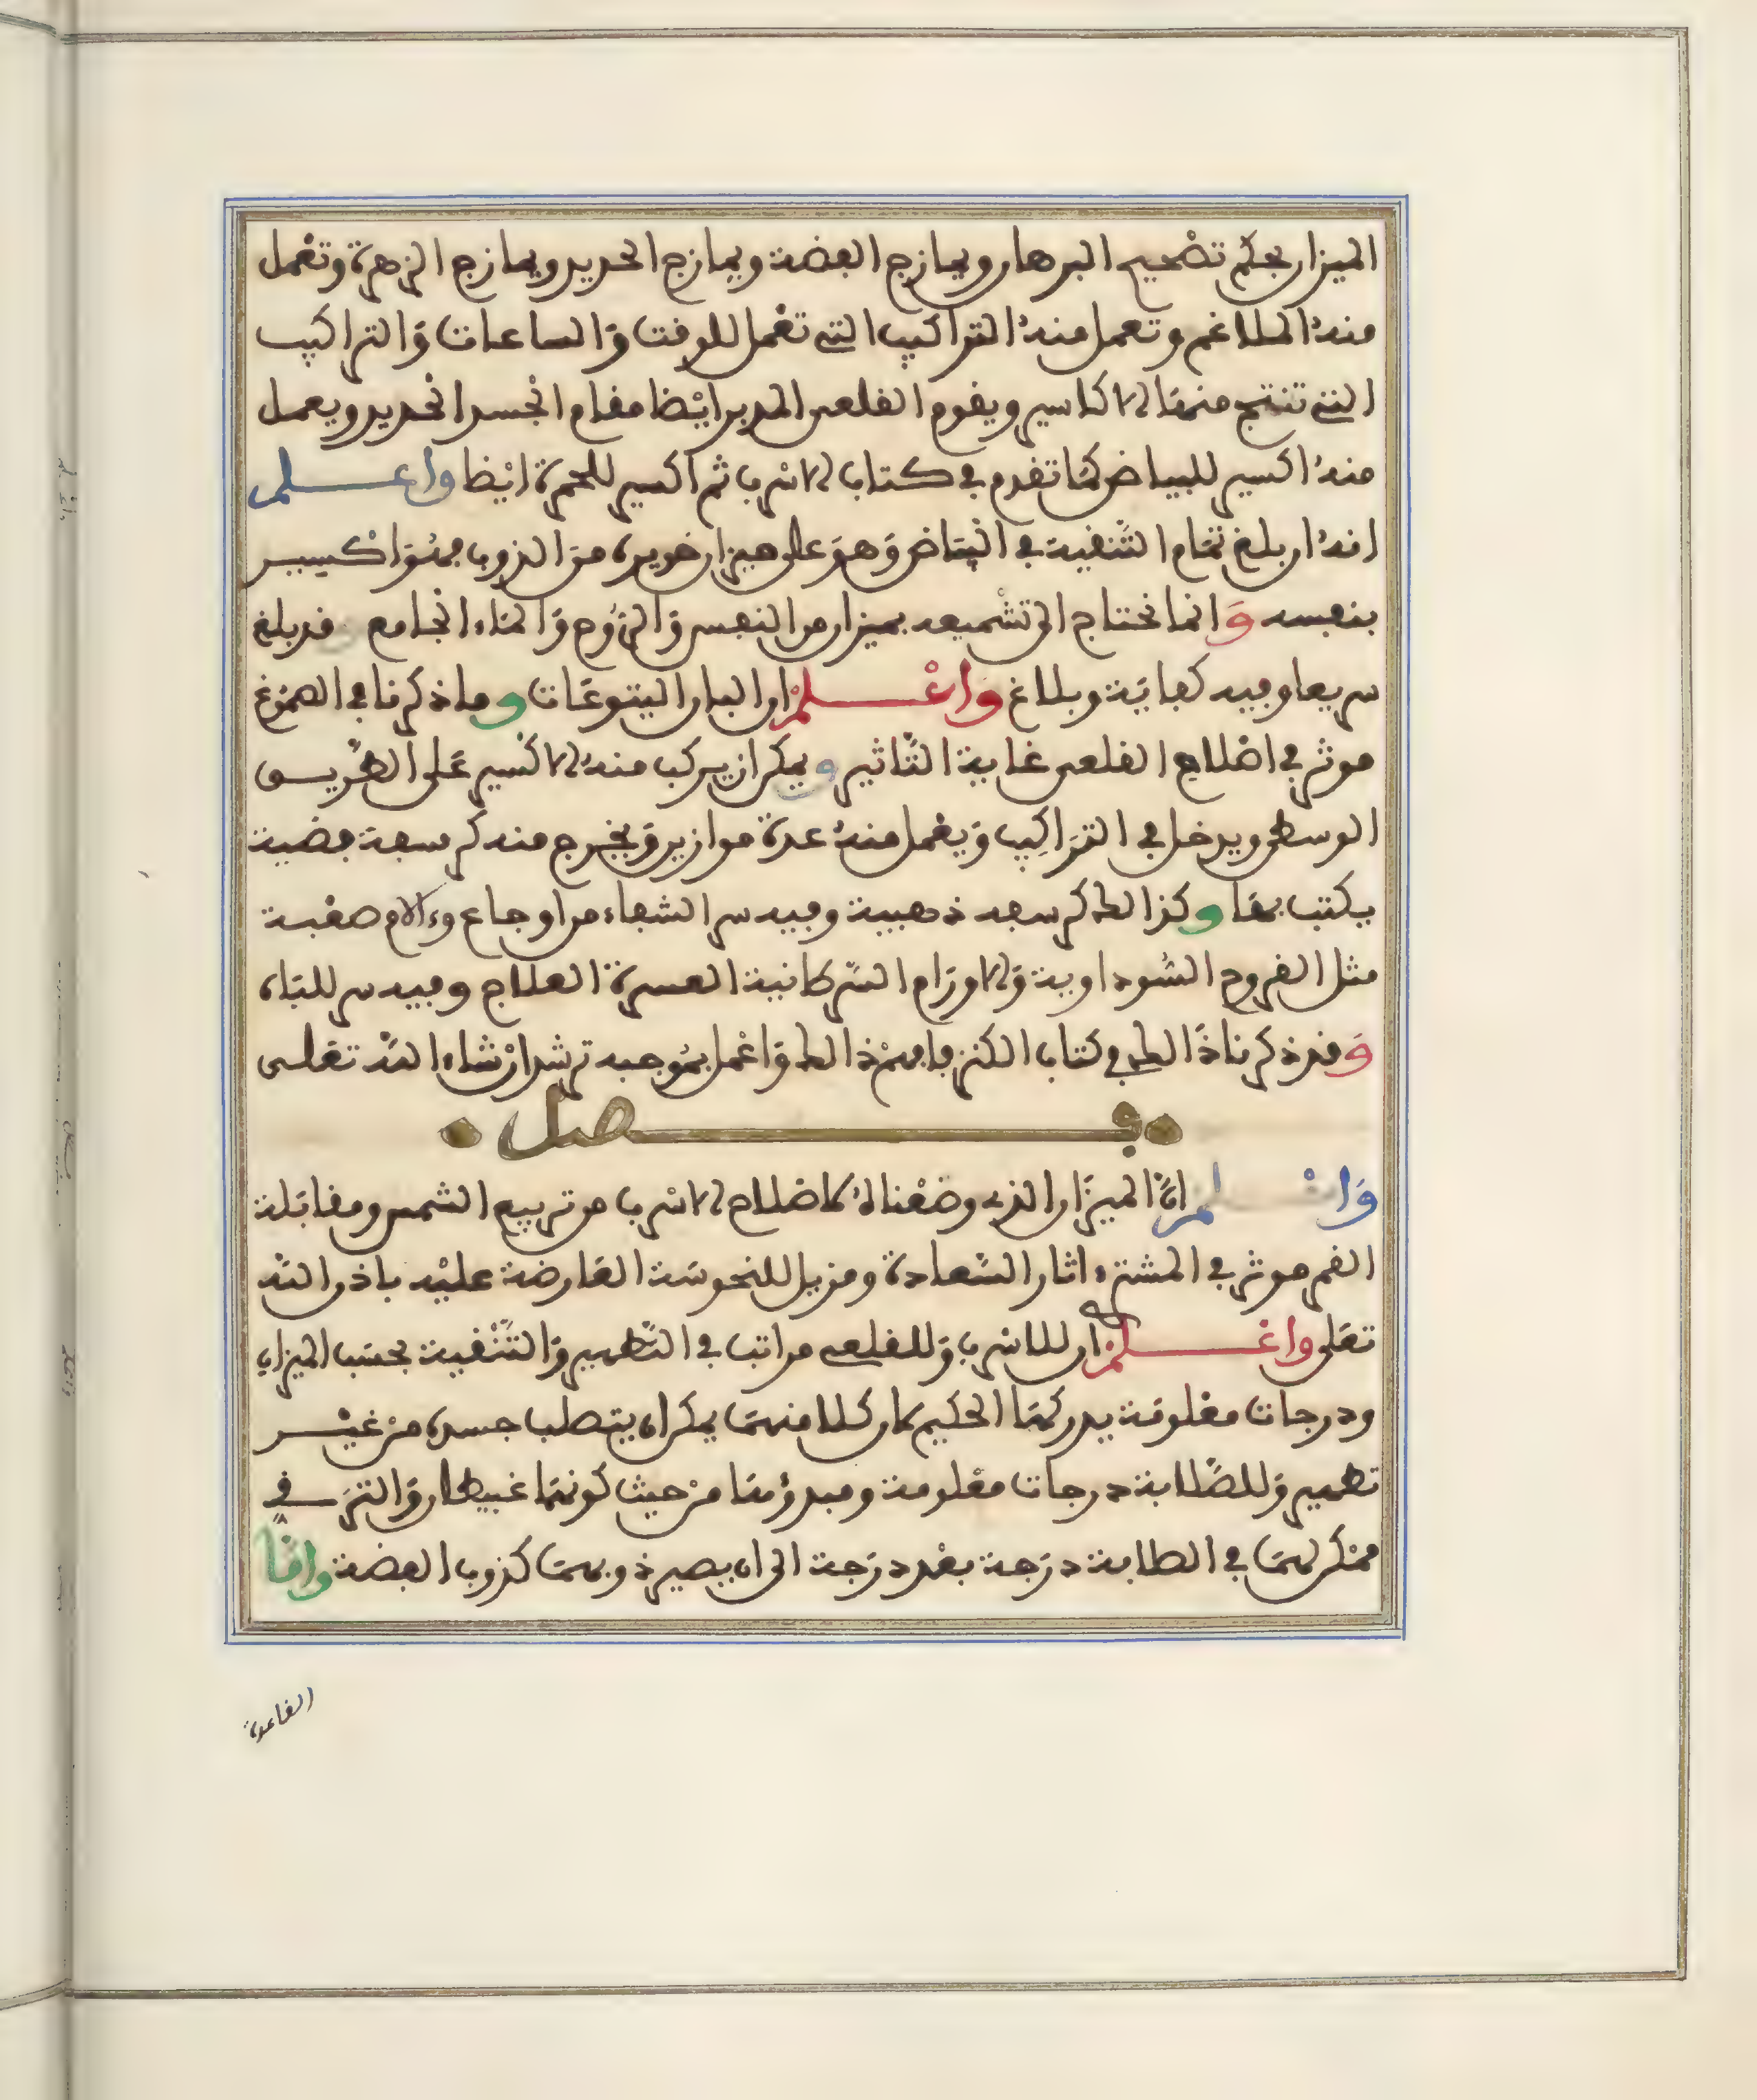 الميزان بحكم تصحيح البرهان ويمازج الفضة ويمازج الحديد ويمازج الزهرة وتعمل
منه الملاغم وتعمل منه التراكيب التي تعمل للوقت والساعات والتراكيب
التي تنتج منها الاكاسير ويقوم القلعي المدبر ايضا مقام الجسد الحديد ويعمل
منه اكسير للبياض كما تقدم في كتاب الاسرب ثم اكسير للحمرة ايضا واعلم
انه ان بلغ تمام التنقية في البياض وهو على ميزان من الذوب فهو اكسير
بنفسه وانما نحتاج الى تشميعه بميزان من النفس والروح والماء الجامع فقد بلغ
سريعا وفيه كفاية وبلاغ واعلم ان البان اليتوعات وما ذكرنا في
موثر في اصلاح القلعي غاية التاثير ويمكن ان يركب منه الاكسير على الطريق
الوسطى ويدخل في التراكيب ويعمل منه عدة موازين ويخرج منه كرسفة فضية
يكتب بها وكذالك كرسفه ذهبية وفيه سر الشفاء من اوجاع وءالام صعبة
مثل القروح السوداوية والاورام السرطانية العسرة العلاج وفيه سر للباه
وقد ذكرنا ذالك في كتاب الكنز فافهم ذالك واعمل بموجبه ترشد ان شاء الله تعلى
فصل
واعلم ان الميزان الذي وضعناه لاصلاح الاسرب من تربيع الشمس ومقابلة
القمر موثر في المشتري اثار السعادة ومزيل للنحوسة العارضة عليه باذن الله
تعلى واعلم ان للاسرب وللقلعي مراتب في التطهير والتنقية بحسب الميزان
ودرجات معلومة يدركها الحكيم لان كلا منهما يمكن ان يتصلب جسده من غير
تطهير وللصلابة درجات معلومة ومبدؤها من حيث كونهما غبيطان والترقي
ممكن لهما في الصلابة درجة بعد درجة الى ان يصير ذوبهما كذوب الفضة واما
القاعدة